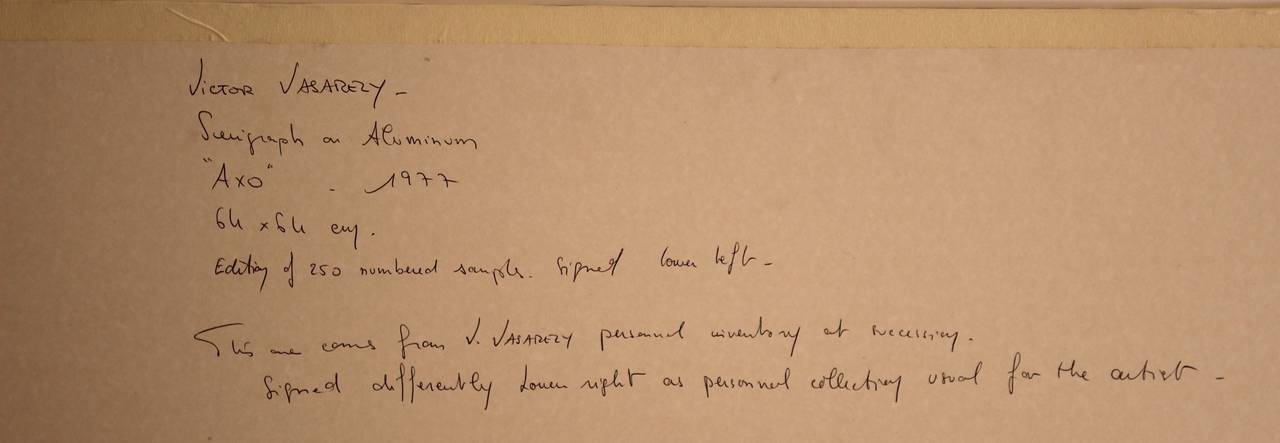 Victor VASARELY -
Serigraph on Aluminum
"AXO" - 1977
64 x 64 cm.
Edition of 250 numbered samples. Signed lower left -
This one comes from V. VASARELY personnel inventory at succession.
Signed differently Lower right as personnel collection usual for the artist -